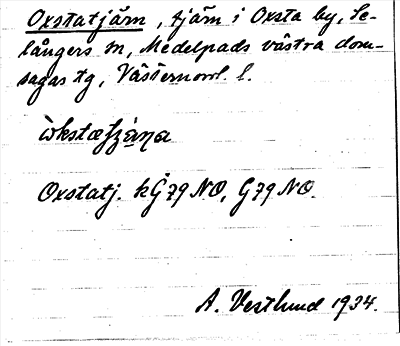 Oxstatjärn, tjärn i Oxsta by, Se-
långers sn, Medelpads västra dom-
sagas tg, Västernorrl. l.
òkstæʃæ̀ɳa
Oxstatj. kG79NO, G79NO.
A. Vestlund 1934.